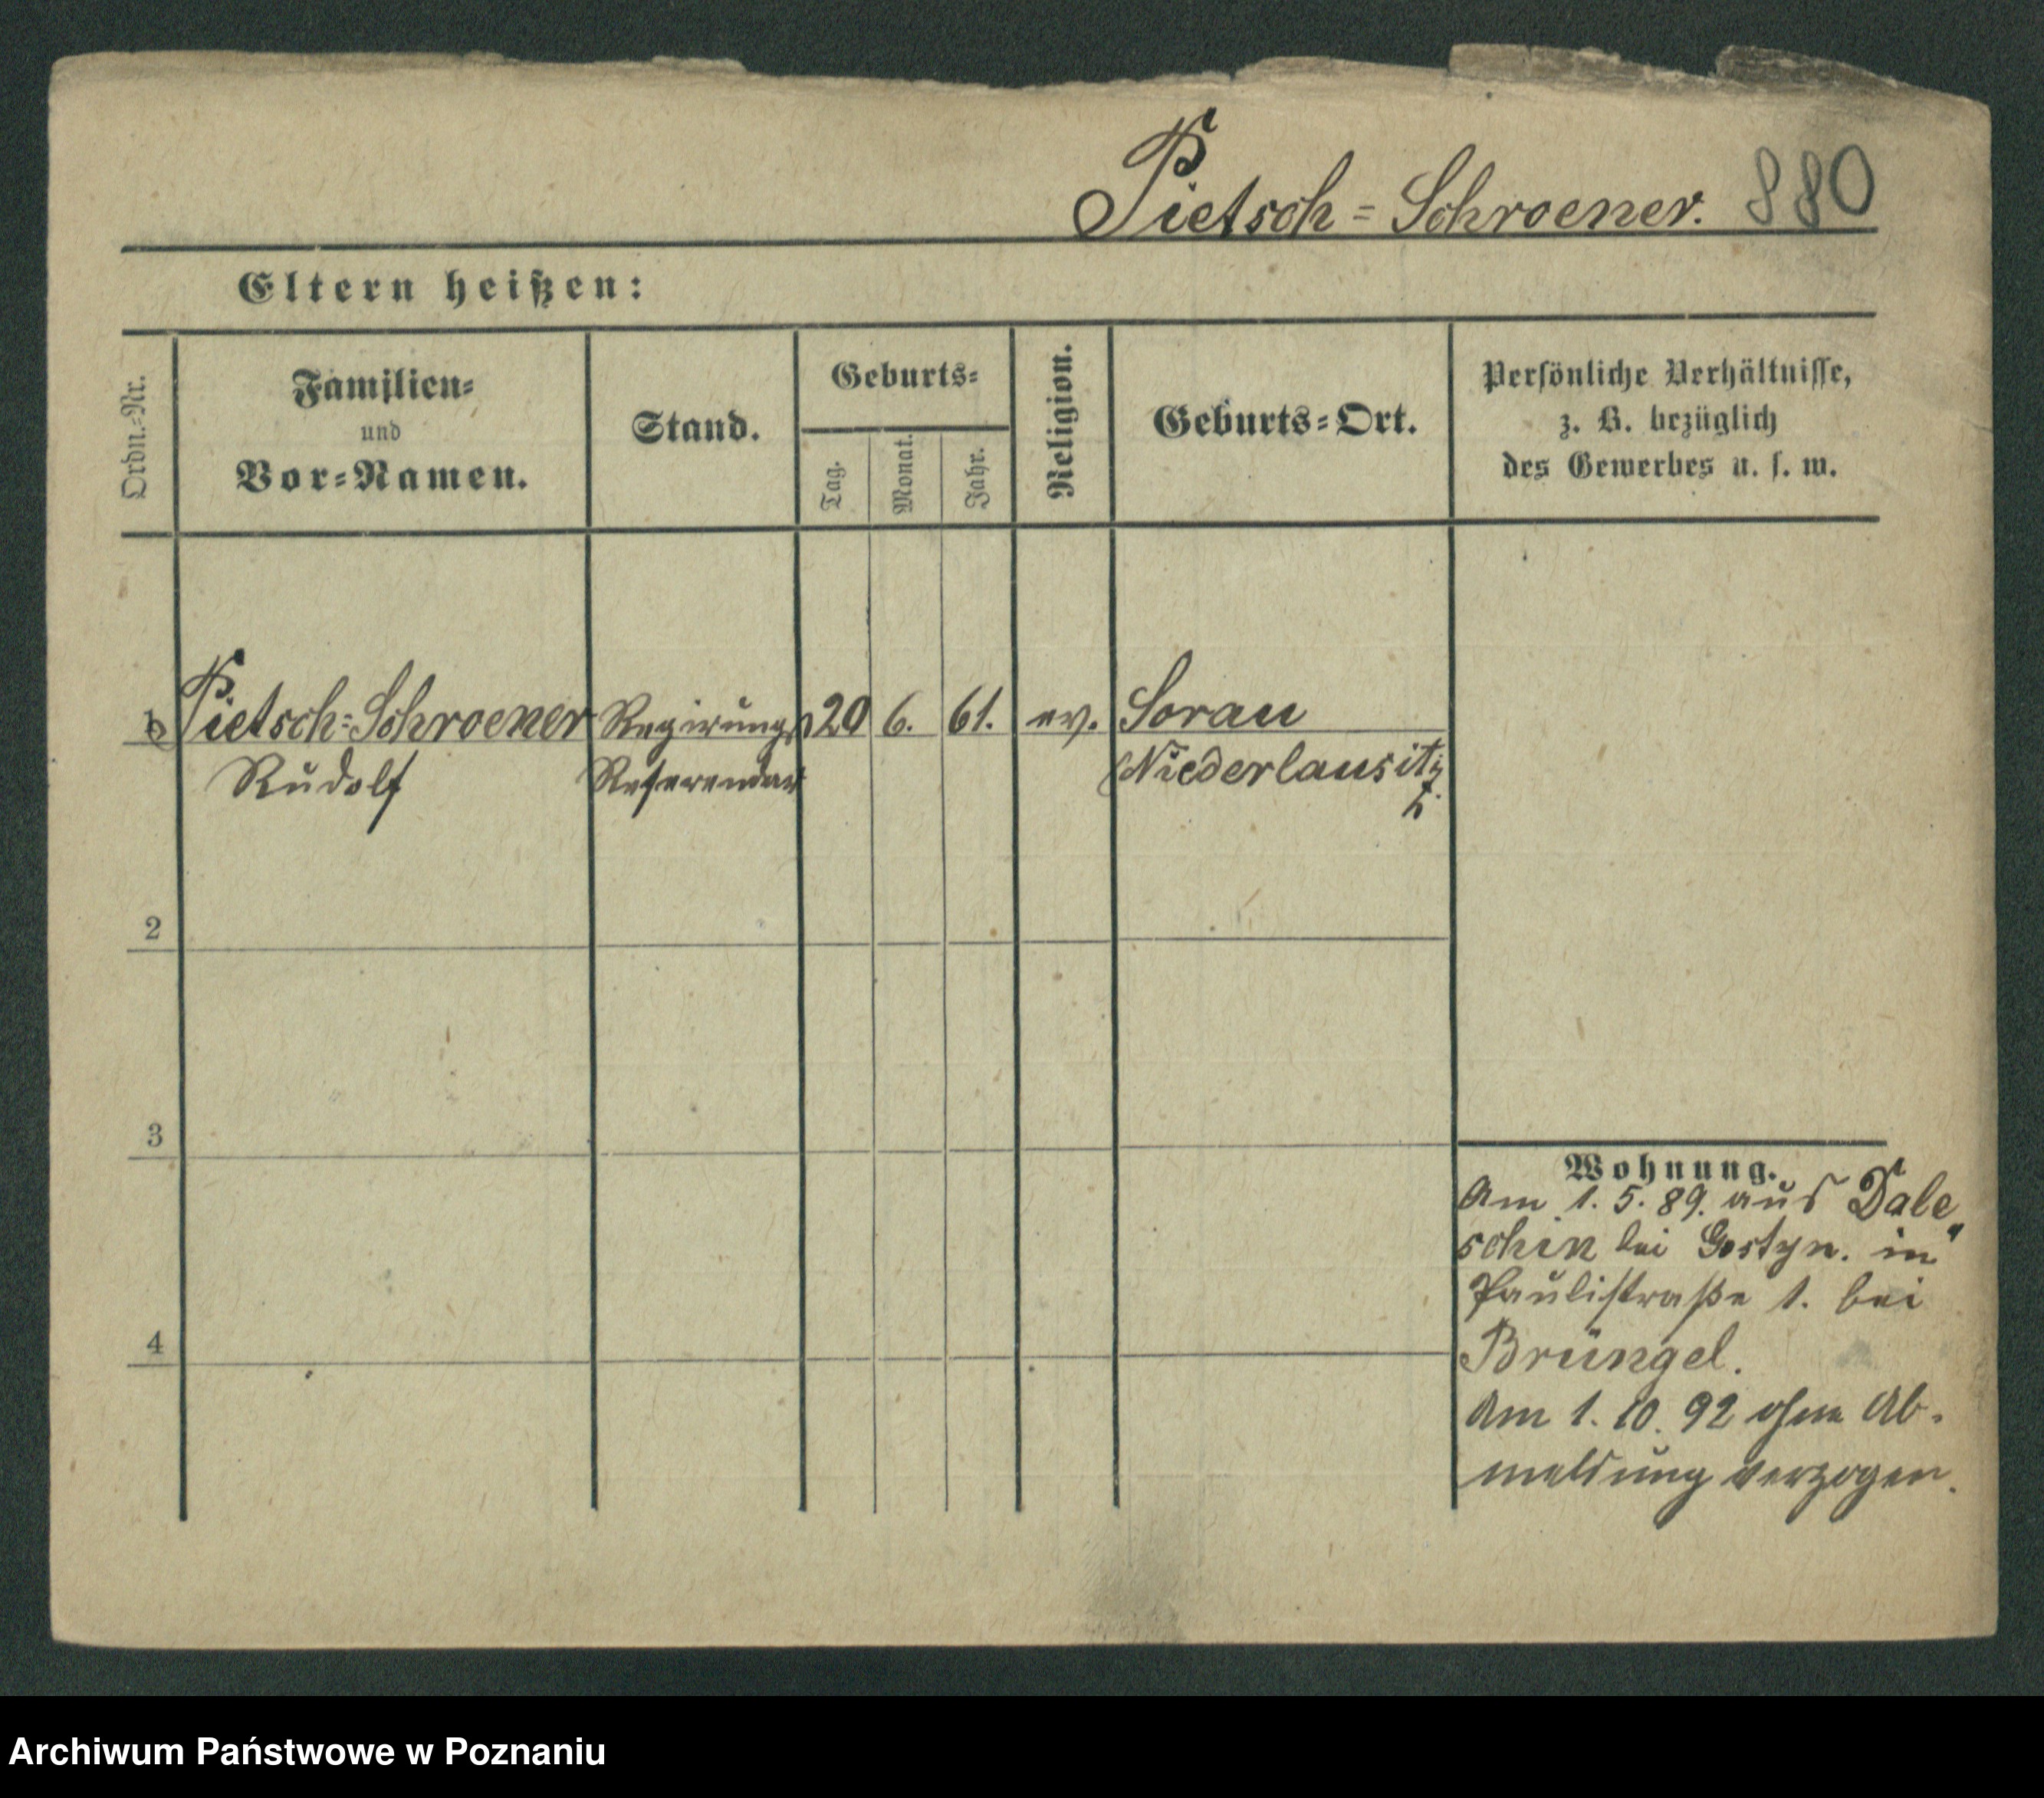 Pietsch=Schroener. 880
Eltern heißen:
Ordn.=Nr.
Familien=
und
Vor=Namen.
Stand.
Geburts=
Tag.
Monat.
Jahr.
Religion.
Geburts=Ort.
Persönliche Verhältnisse,
z. B. bezüglich
des Gewerbes u. s. w.
1 Pietsch=Schroener Regirungs 20 6. 61. ev. Sorau
Rudolf Referendar Niederlausitz
2
3
4
Wohnung.
Am 1. 5. 89. aus Dale„
schin bei Gostyn. in
Paulistraße 1. bei
Brüngel.
Am 1. 10. 92 ohne Ab-
meldung verzogen.
Archiwum Państwowe w Poznaniu